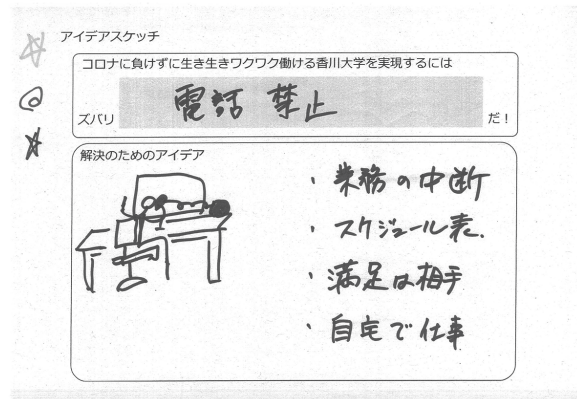 アイデアスケッチ
コロナに負けずに生き生きワクワク働ける香川大学を実現するには
電話 禁止
ズバリ だ！
解決のためのアイデア
・業務の中断
・スケジュール表.
・満足は相手
・自宅で仕事